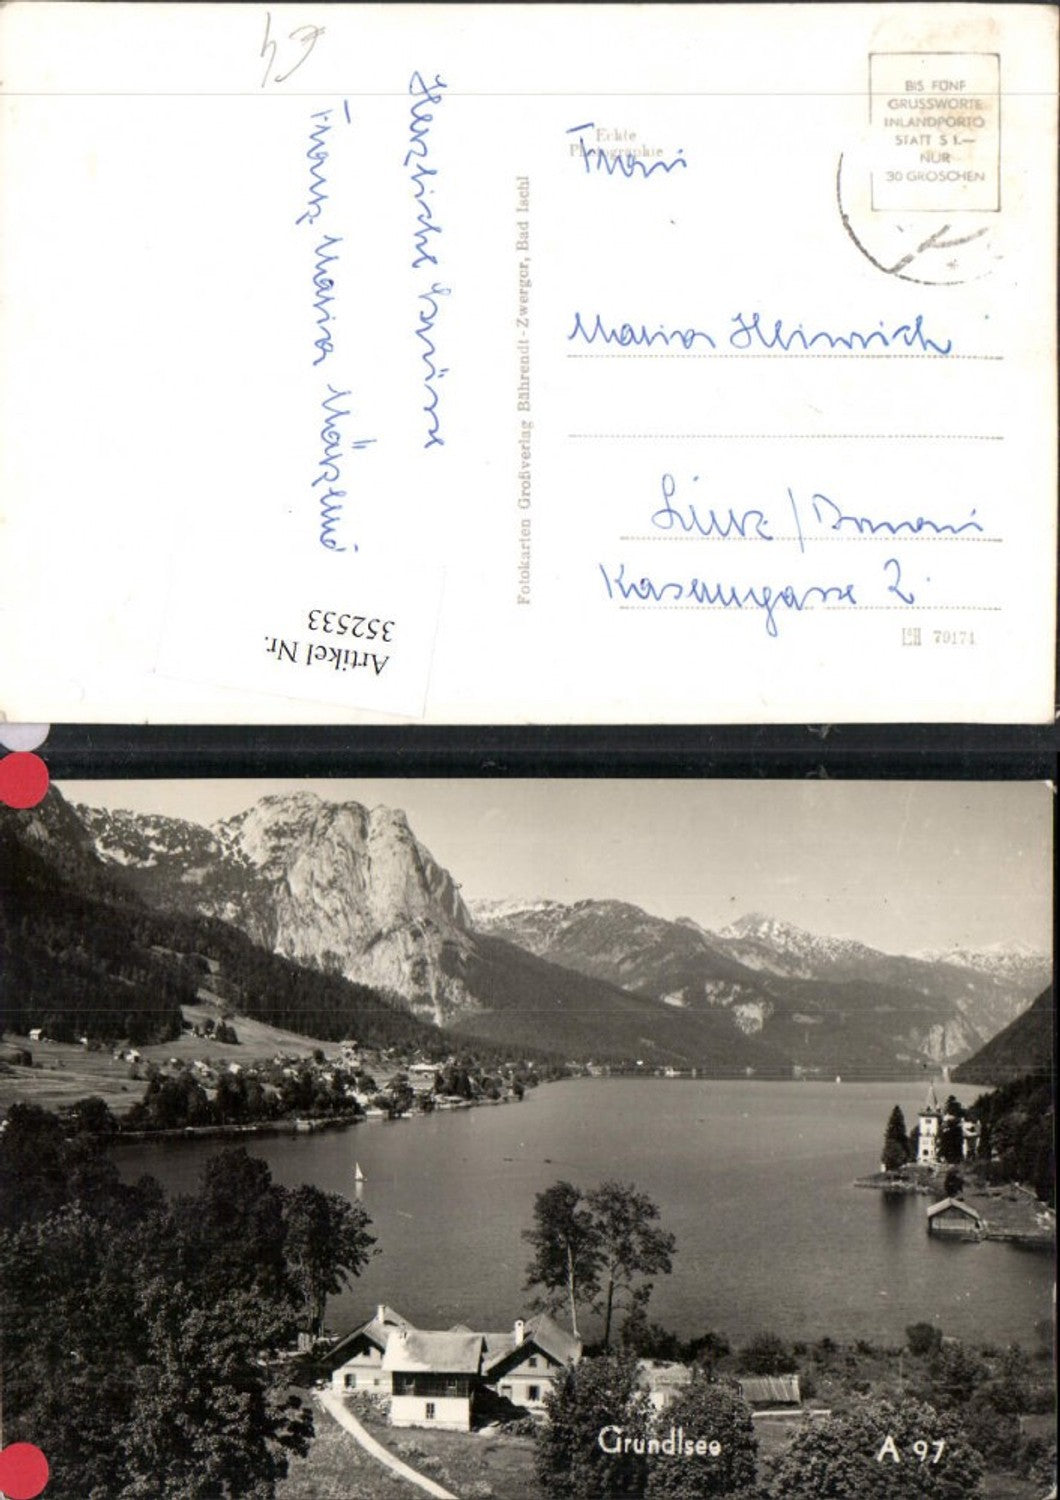 €4
Herzliche Grüsse
Franz Maria
BIS FÜNF
GRUSSWORTE
INLANDPORTO
STATT S 1.—
NUR
30 GROSCHEN
Echte
Photographie
Frau
Maria Heinrich
Linz / Donau
Kaserngasse 2
70171
Fotokarten Großverlag Bährendt-Zwerger, Bad Ischl
Artikel Nr.
352533
Grundlsee
A 97